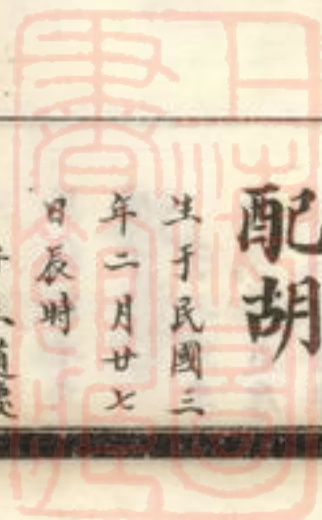 配胡
生于民國三
年二月廿七
日辰時